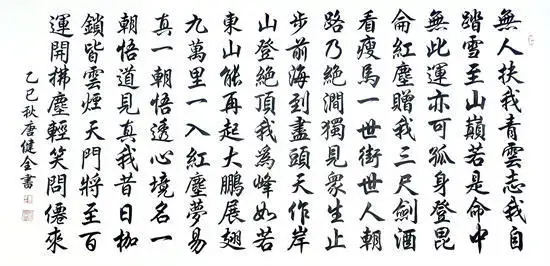 無人扶我青雲志我自
踏雪至山巔若是命中
無此運亦可孤身登昆
侖紅塵贈我三尺劍酒
看瘦馬一世街世人朝
路乃絕澗獨見衆生止
步前海到盡頭天作岸
山登絕頂我為峰如若
東山能再起大鵬展翅
九萬里一入紅塵夢易
真一朝悟透心境名一
朝悟道見真我昔日枷
鎖皆雲煙天門將至百
運開拂塵輕笑問僊來
乙巳秋唐健全書